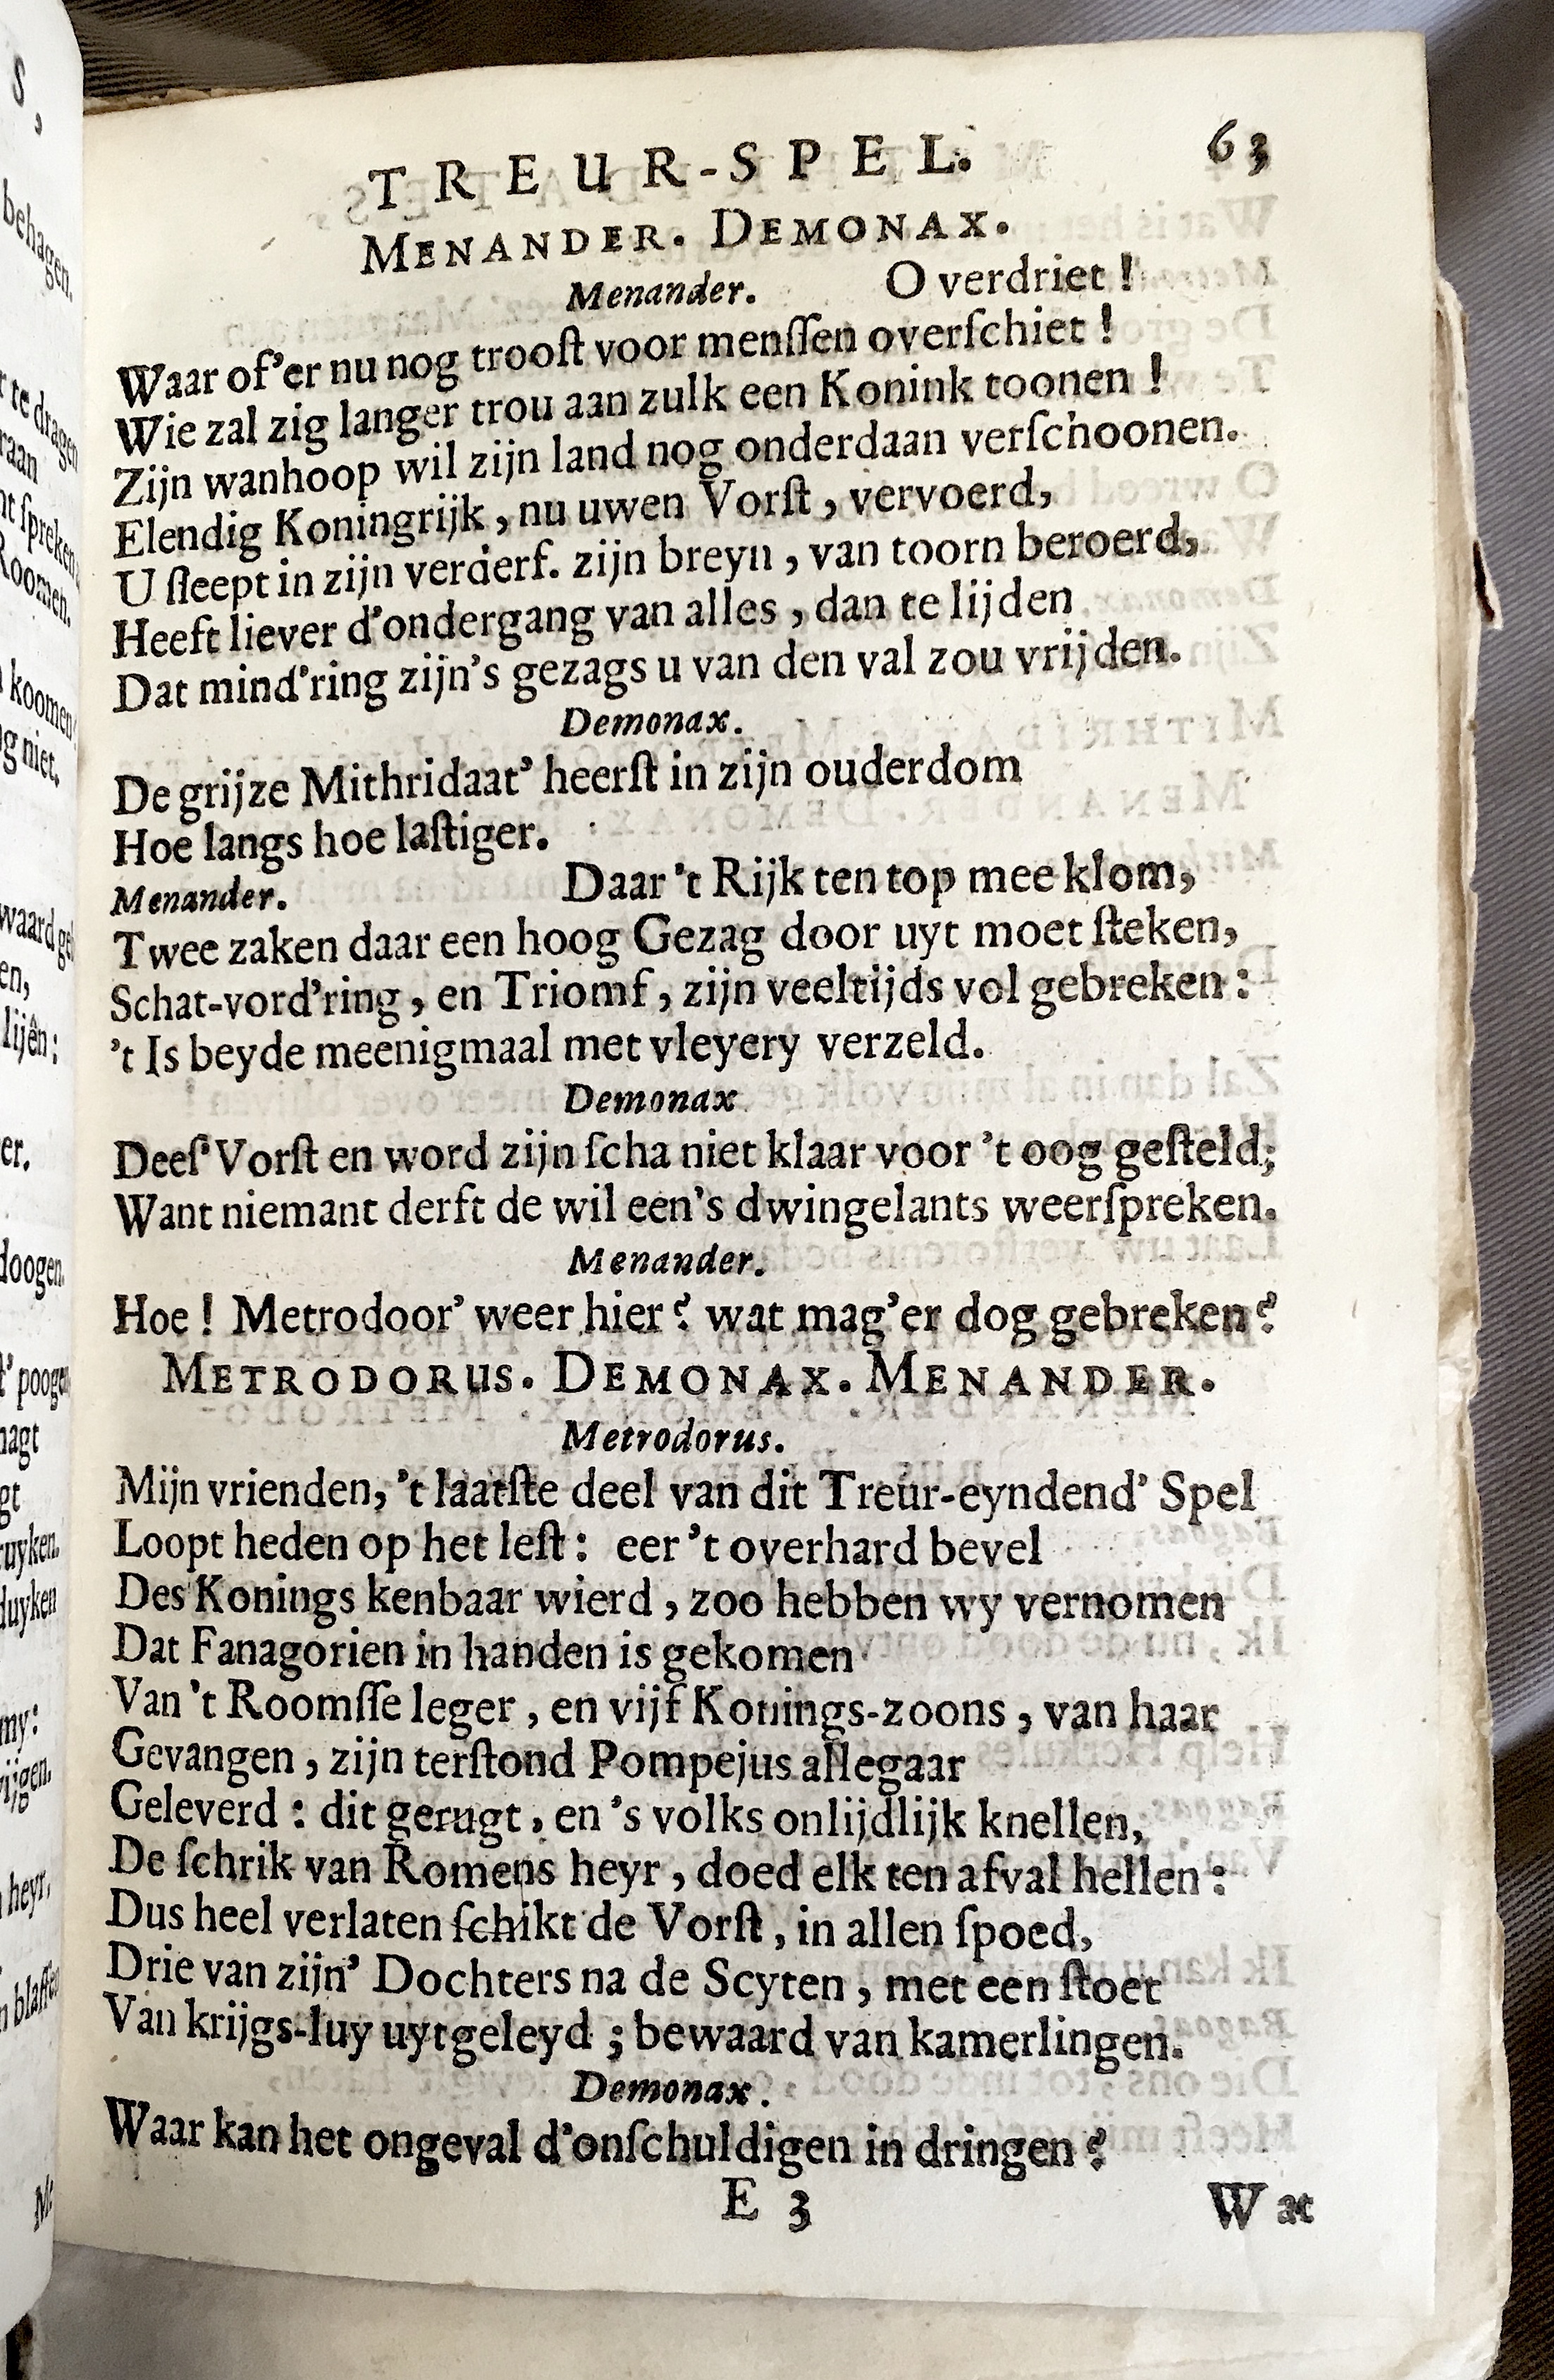 TREUR-SPEL. 63
MENANDER. DEMONAX.
Menander. O verdriet!
Waar of'er nu nog trooſt voor menſſen overſchiet!
Wie zal zig langer trou aan zulk een Konink toonen!
Zijn wanhoop wil zijn land nog onderdaan verſchoonen.
Elendig Koningrijk, nu uwen Vorſt, vervoerd,
U ſleept in zijn verderf. zijn breyn, van toorn beroerd,
Heeft liever d'ondergang van alles, dan te lijden
Dat mind'ring zijn's gezags u van den val zou vrijden.
Demonax.
De grijze Mithridaat' heerſt in zijn ouderdom
Hoe langs hoe laſtiger.
Menander. Daar 't Rijk ten top mee klom,
Twee zaken daar een hoog Gezag door uyt moet ſteken,
Schat-vord'ring, en Triomf, zijn veeltijds vol gebreken:
't Is beyde meenigmaal met vleyery verzeld.
Demonax
Deeſ' Vorſt en word zijn ſcha niet klaar voor 't oog geſteld;
Want niemant derft de wil een's dwingelants weerſpreken.
Menander.
Hoe! Metrodoor' weer hier? wat mag'er dog gebreken?
METRODORUS. DEMONAX. MENANDER.
Metrodorus.
Mijn vrienden, 't laatſte deel van dit Treur-eyndend' Spel
Loopt heden op het leſt: eer 't overhard bevel
Des Konings kenbaar wierd, zoo hebben wy vernomen
Dat Fanagorien in handen is gekomen
Van 't Roomſſe leger, en vijf Konings-zoons, van haar
Gevangen, zijn terſtond Pompejus allegaar
Geleverd: dit gerugt, en 's volks onlijdlijk knellen,
De ſchrik van Romens heyr, doed elk ten afval hellen:
Dus heel verlaten ſchikt de Vorſt, in allen ſpoed,
Drie van zijn' Dochters na de Scyten, met een ſtoet
Van krijgs-luy uytgeleyd; bewaard van kamerlingen.
Demonax.
Waar kan het ongeval d'onſchuldigen in dringen?
E 3 Wat